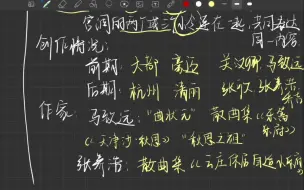 宫调的两首或三首小令连在一起，共同表达
同一内容
创作情况：
前期：大都 豪迈 关汉卿 马致远
后期：杭州 清丽 张可久 张养浩
作家：马致远："曲状元" 散曲集《东篱
乐府》
《天净沙·秋思》"秋思之祖"
张养浩：散曲集《云庄休居自适小乐府